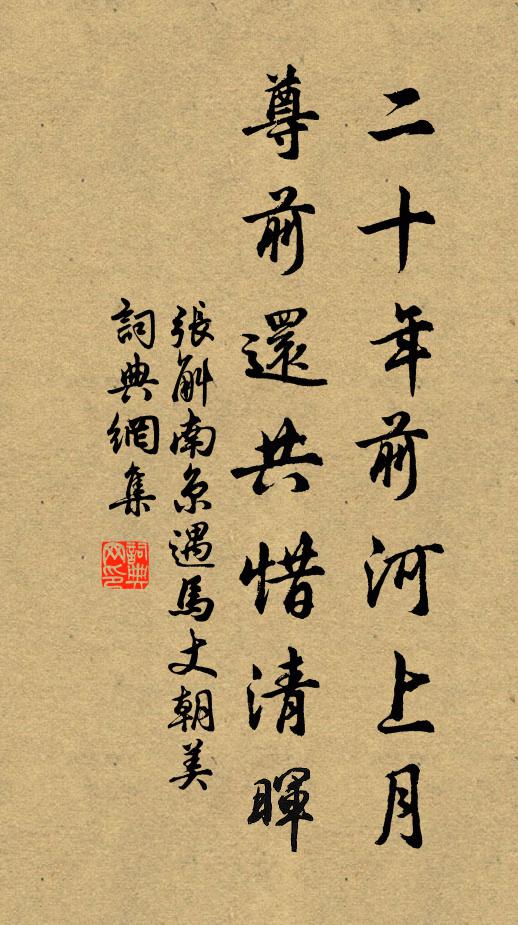 二十年前河上月
尊前還共惜清暉
張斛南京遇馬丈朝美
詞典網集
詞典网印